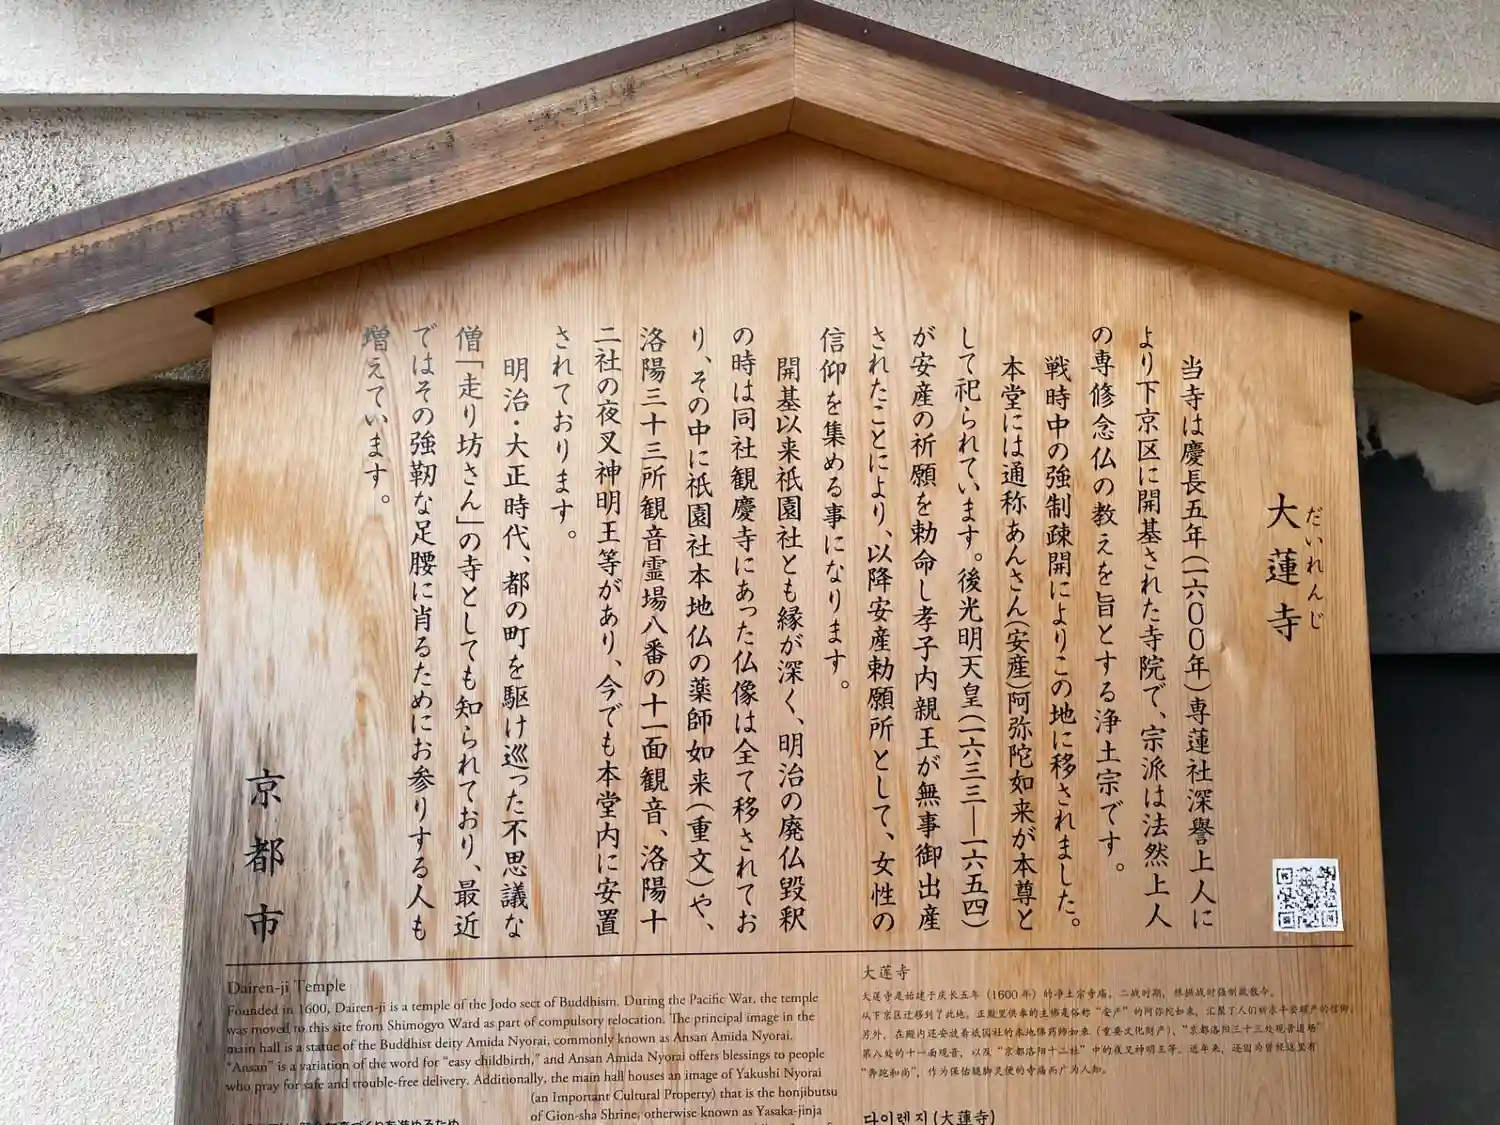 だいれんじ
大蓮寺
当寺は慶長五年(一六〇〇年)専蓮社深誉上人に
より下京区に開基された寺院で、宗派は法然上人
の専修念仏の教えを旨とする浄土宗です。
戦時中の強制疎開によりこの地に移されました。
本堂には通称あんさん(安産)阿弥陀如来が本尊と
して祀られています。後光明天皇(一六三三―一六五四)
が安産の祈願を勅命し孝子内親王が無事御出産
されたことにより、以降安産勅願所として、女性の
信仰を集める事になります。
開基以来祇園社とも縁が深く、明治の廃仏毀釈
の時は同社観慶寺にあった仏像は全て移されてお
り、その中に祇園社本地仏の薬師如来(重文)や、
洛陽三十三所観音霊場八番の十一面観音、洛陽十
二社の夜叉神明王等があり、今でも本堂内に安置
されております。
明治・大正時代、都の町を駆け巡った不思議な
僧「走り坊さん」の寺としても知られており、最近
ではその強靭な足腰に肖るためにお参りする人も
増えています。
京都市
Dairen-ji Temple
Founded in 1600, Dairen-ji is a temple of the Jodo sect of Buddhism. During the Pacific War, the temple
was moved to this site from Shimogyo Ward as part of compulsory relocation. The principal image in the
main hall is a statue of the Buddhist deity Amida Nyorai, commonly known as Ansan Amida Nyorai.
"Ansan" is a variation of the word for "easy childbirth," and Ansan Amida Nyorai offers blessings to people
who pray for safe and trouble-free delivery. Additionally, the main hall houses an image of Yakushi Nyorai
(an Important Cultural Property) that is the honjibutsu
of Gion-sha Shrine, otherwise known as Yasaka-jinja
大莲寺
大莲寺是始建于庆长五年(1600年)的净土宗寺庙。二战时期,根据战时强制疏散令,
从下京区迁移到了此地。正殿里供奉的主佛是俗称"安产"的阿弥陀如来,汇聚了人们祈求平安顺产的信仰。
另外,在殿内还安放着祇园社的本地佛药师如来(重要文化财产)、"京都洛阳三十三处观音道场"
第八处的十一面观音,以及"京都洛阳十二社"中的夜叉神明王等。近年来,还因为曾经这里有
"奔跑和尚",作为保佑腿脚灵便的寺庙而广为人知。
다이렌지(大蓮寺)